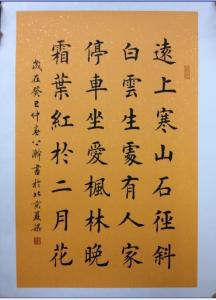 遠上寒山石徑斜
白雲生處有人家
停車坐愛楓林晚
霜葉紅於二月花
歲在癸巳仲春書於北京